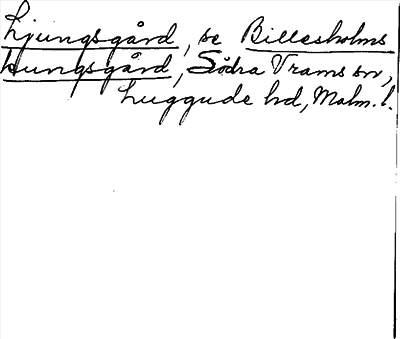 Ljungsgård, se Billesholms
Kungsgård, Södra Vrams sn,
Luggude hd, Malm. l.